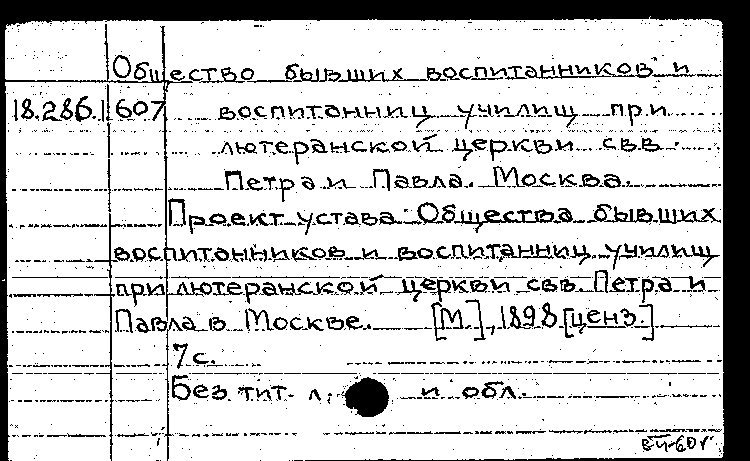 Общество бывших воспитанников и
18.286.1.607 воспитанниц училищ при
лютеранской церкви свв.
Петра и Павла. Москва.
Проект устава Общества бывших
воспитанников и воспитанниц училищ
при лютеранской церкви свв. Петра и
Павла в Москве. [М.], 1898 [ценз.]
7 с.
Без тит. л. и обл.